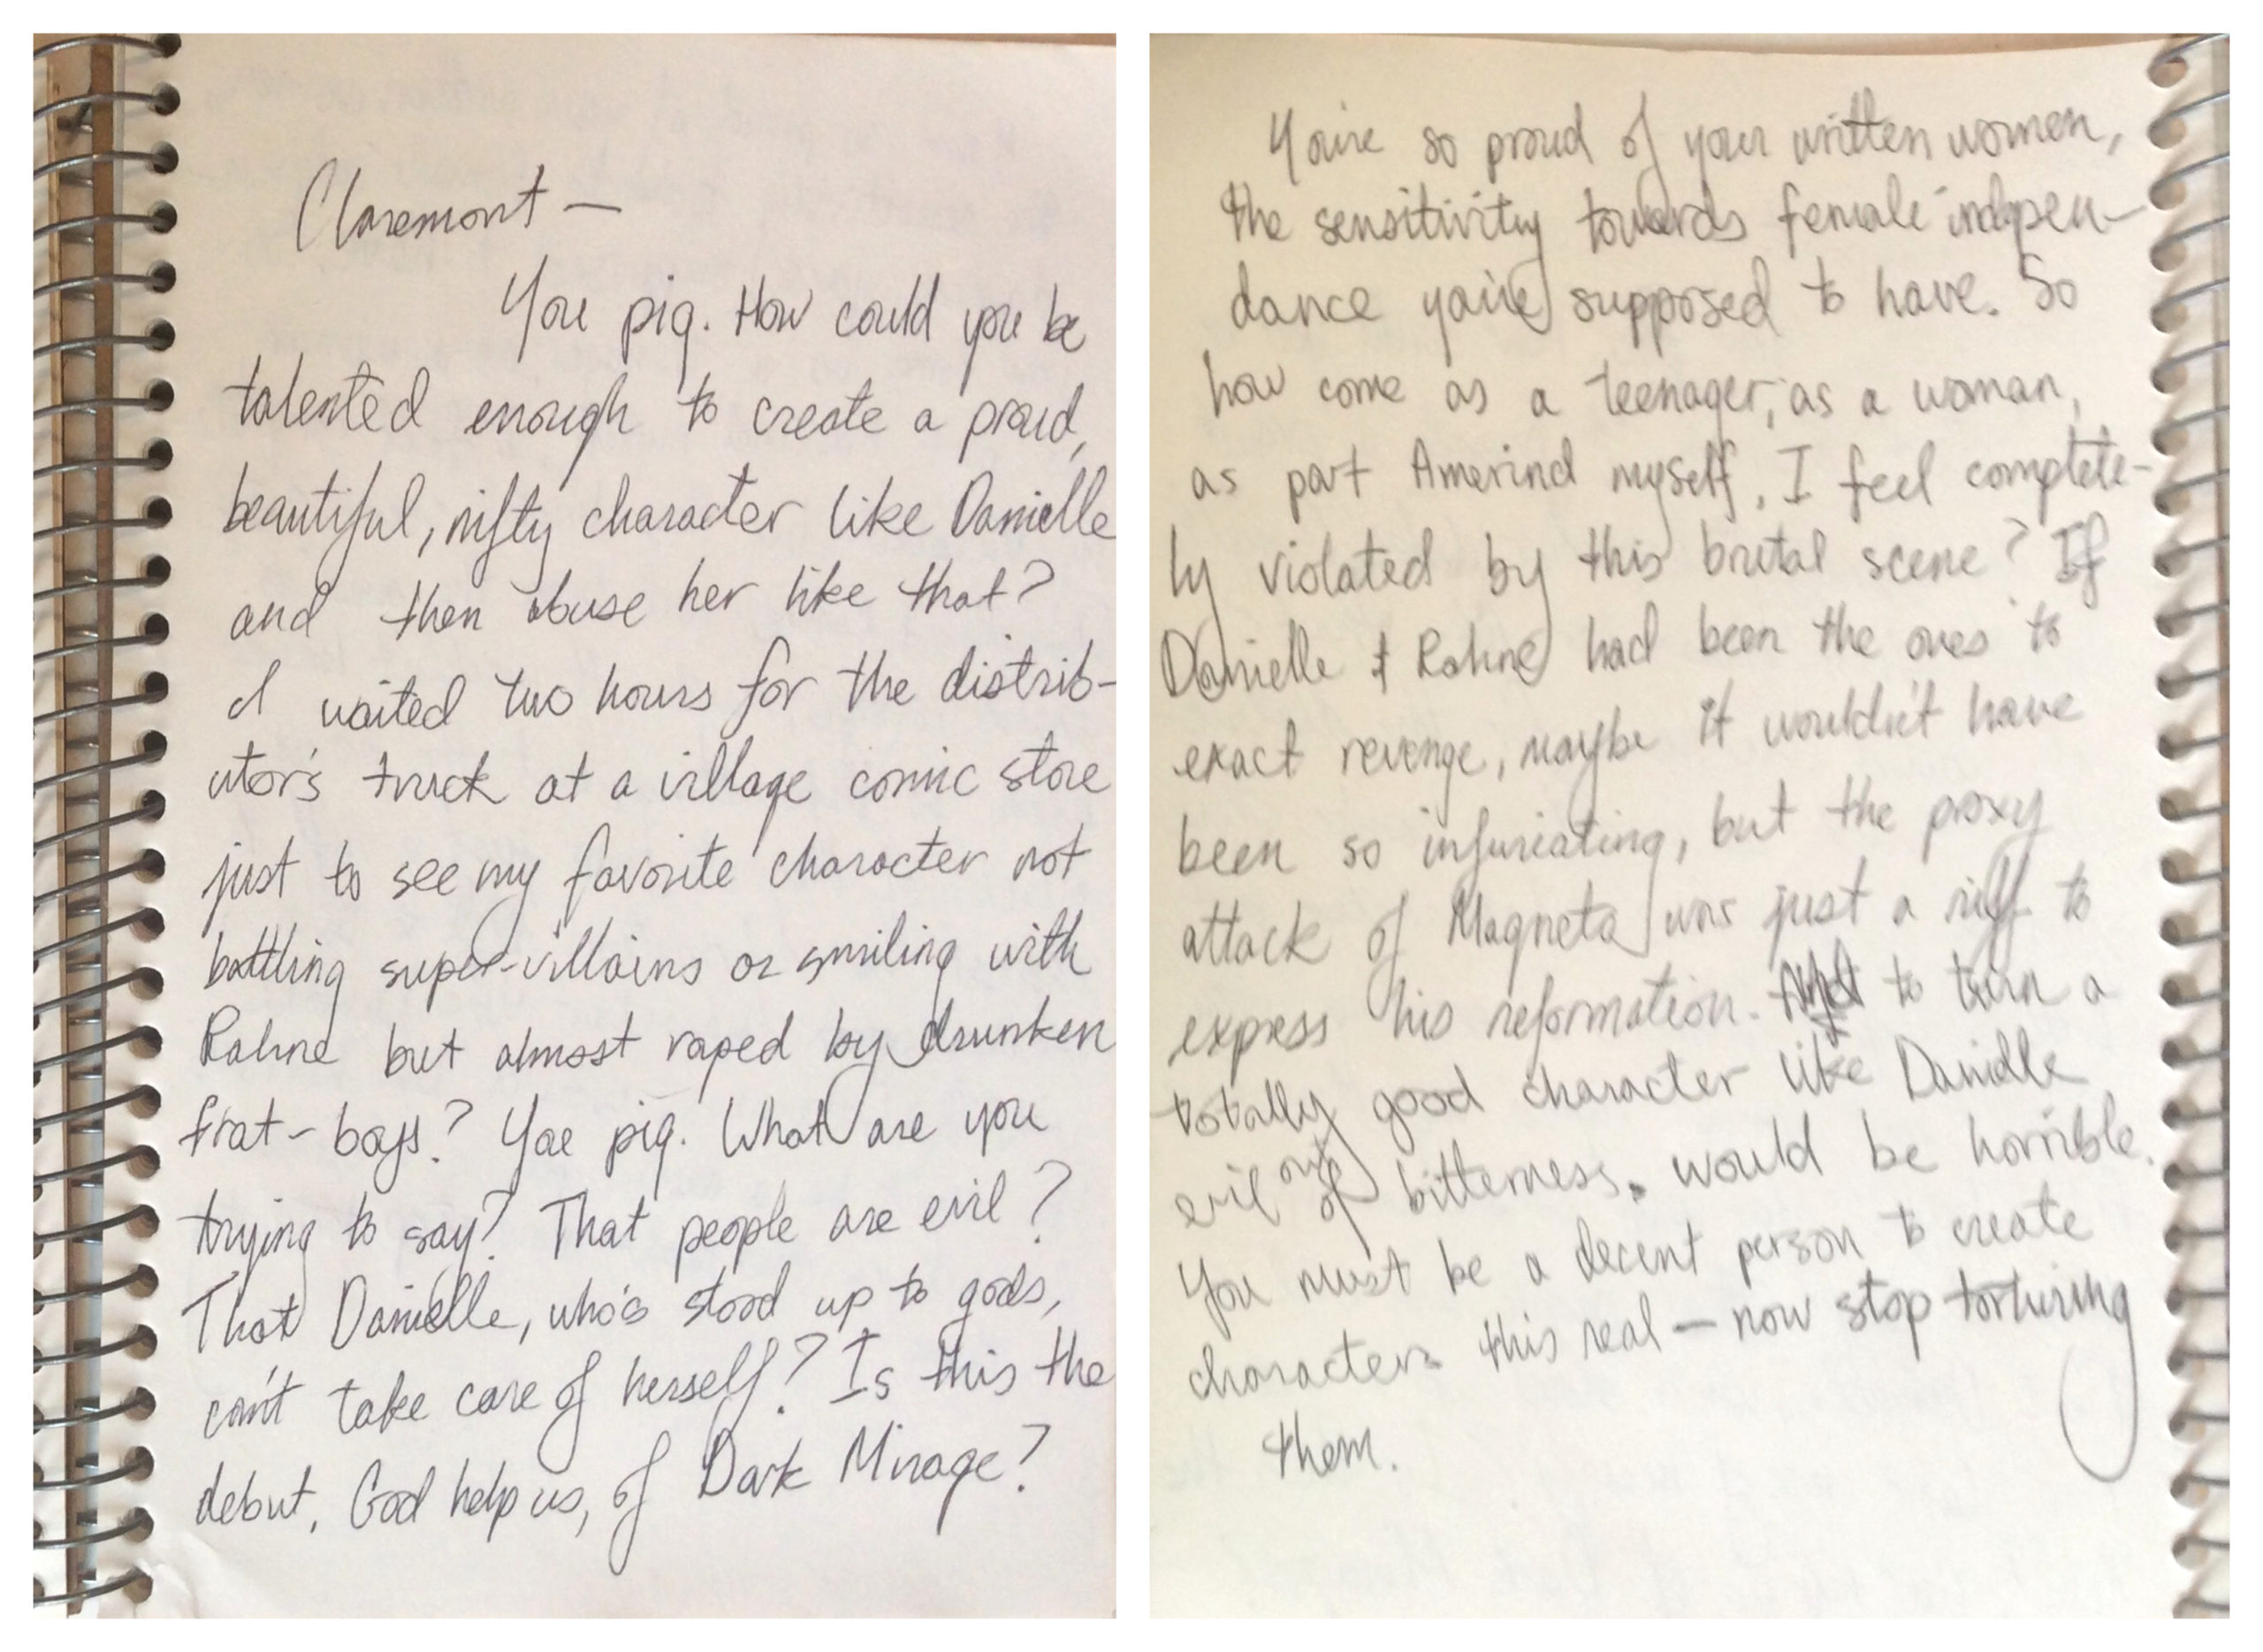 Claremont —
You pig. How could you be
talented enough to create a proud,
beautiful, nifty character like Danielle
and then abuse her like that?
I waited two hours for the distrib-
utor's truck at a village comic store
just to see my favorite character not
battling super-villains or smiling with
Rahne but almost raped by drunken
frat-boys? You pig. What are you
trying to say? That people are evil?
That Danielle, who's stood up to gods,
can't take care of herself? Is this the
debut, God help us, of Dark Mirage?
You're so proud of your written women,
the sensitivity towards female indepen-
dance you're supposed to have. So
how come as a teenager, as a woman,
as part Amerind myself, I feel complete-
ly violated by this brutal scene? If
Danielle & Rahne had been the ones to
exact revenge, maybe it wouldn't have
been so infuriating, but the proxy
attack of Magneto was just a riff to
express his reformation. to turn a
totally good character like Danielle
evil out of bitterness. would be horrible.
You must be a decent person to create
characters this real — now stop torturing
them.